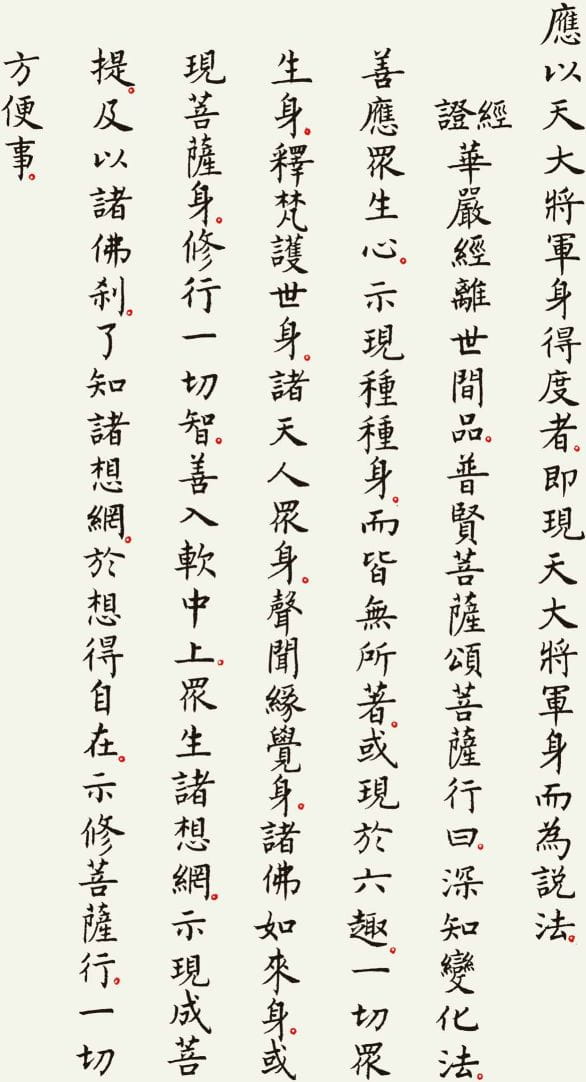 應以天大將軍身得度者。即現天大將軍身而為說法。
經證 華嚴經離世間品。普賢菩薩頌菩薩行曰。深知變化法。
善應眾生心。示現種種身。而皆無所著。或現於六趣。一切眾
生身。釋梵護世身。諸天人眾身。聲聞緣覺身。諸佛如來身。或
現菩薩身。修行一切智。善入軟中上。眾生諸想網。示現成菩
提。及以諸佛剎。了知諸想網。於想得自在。示修菩薩行。一切
方便事。